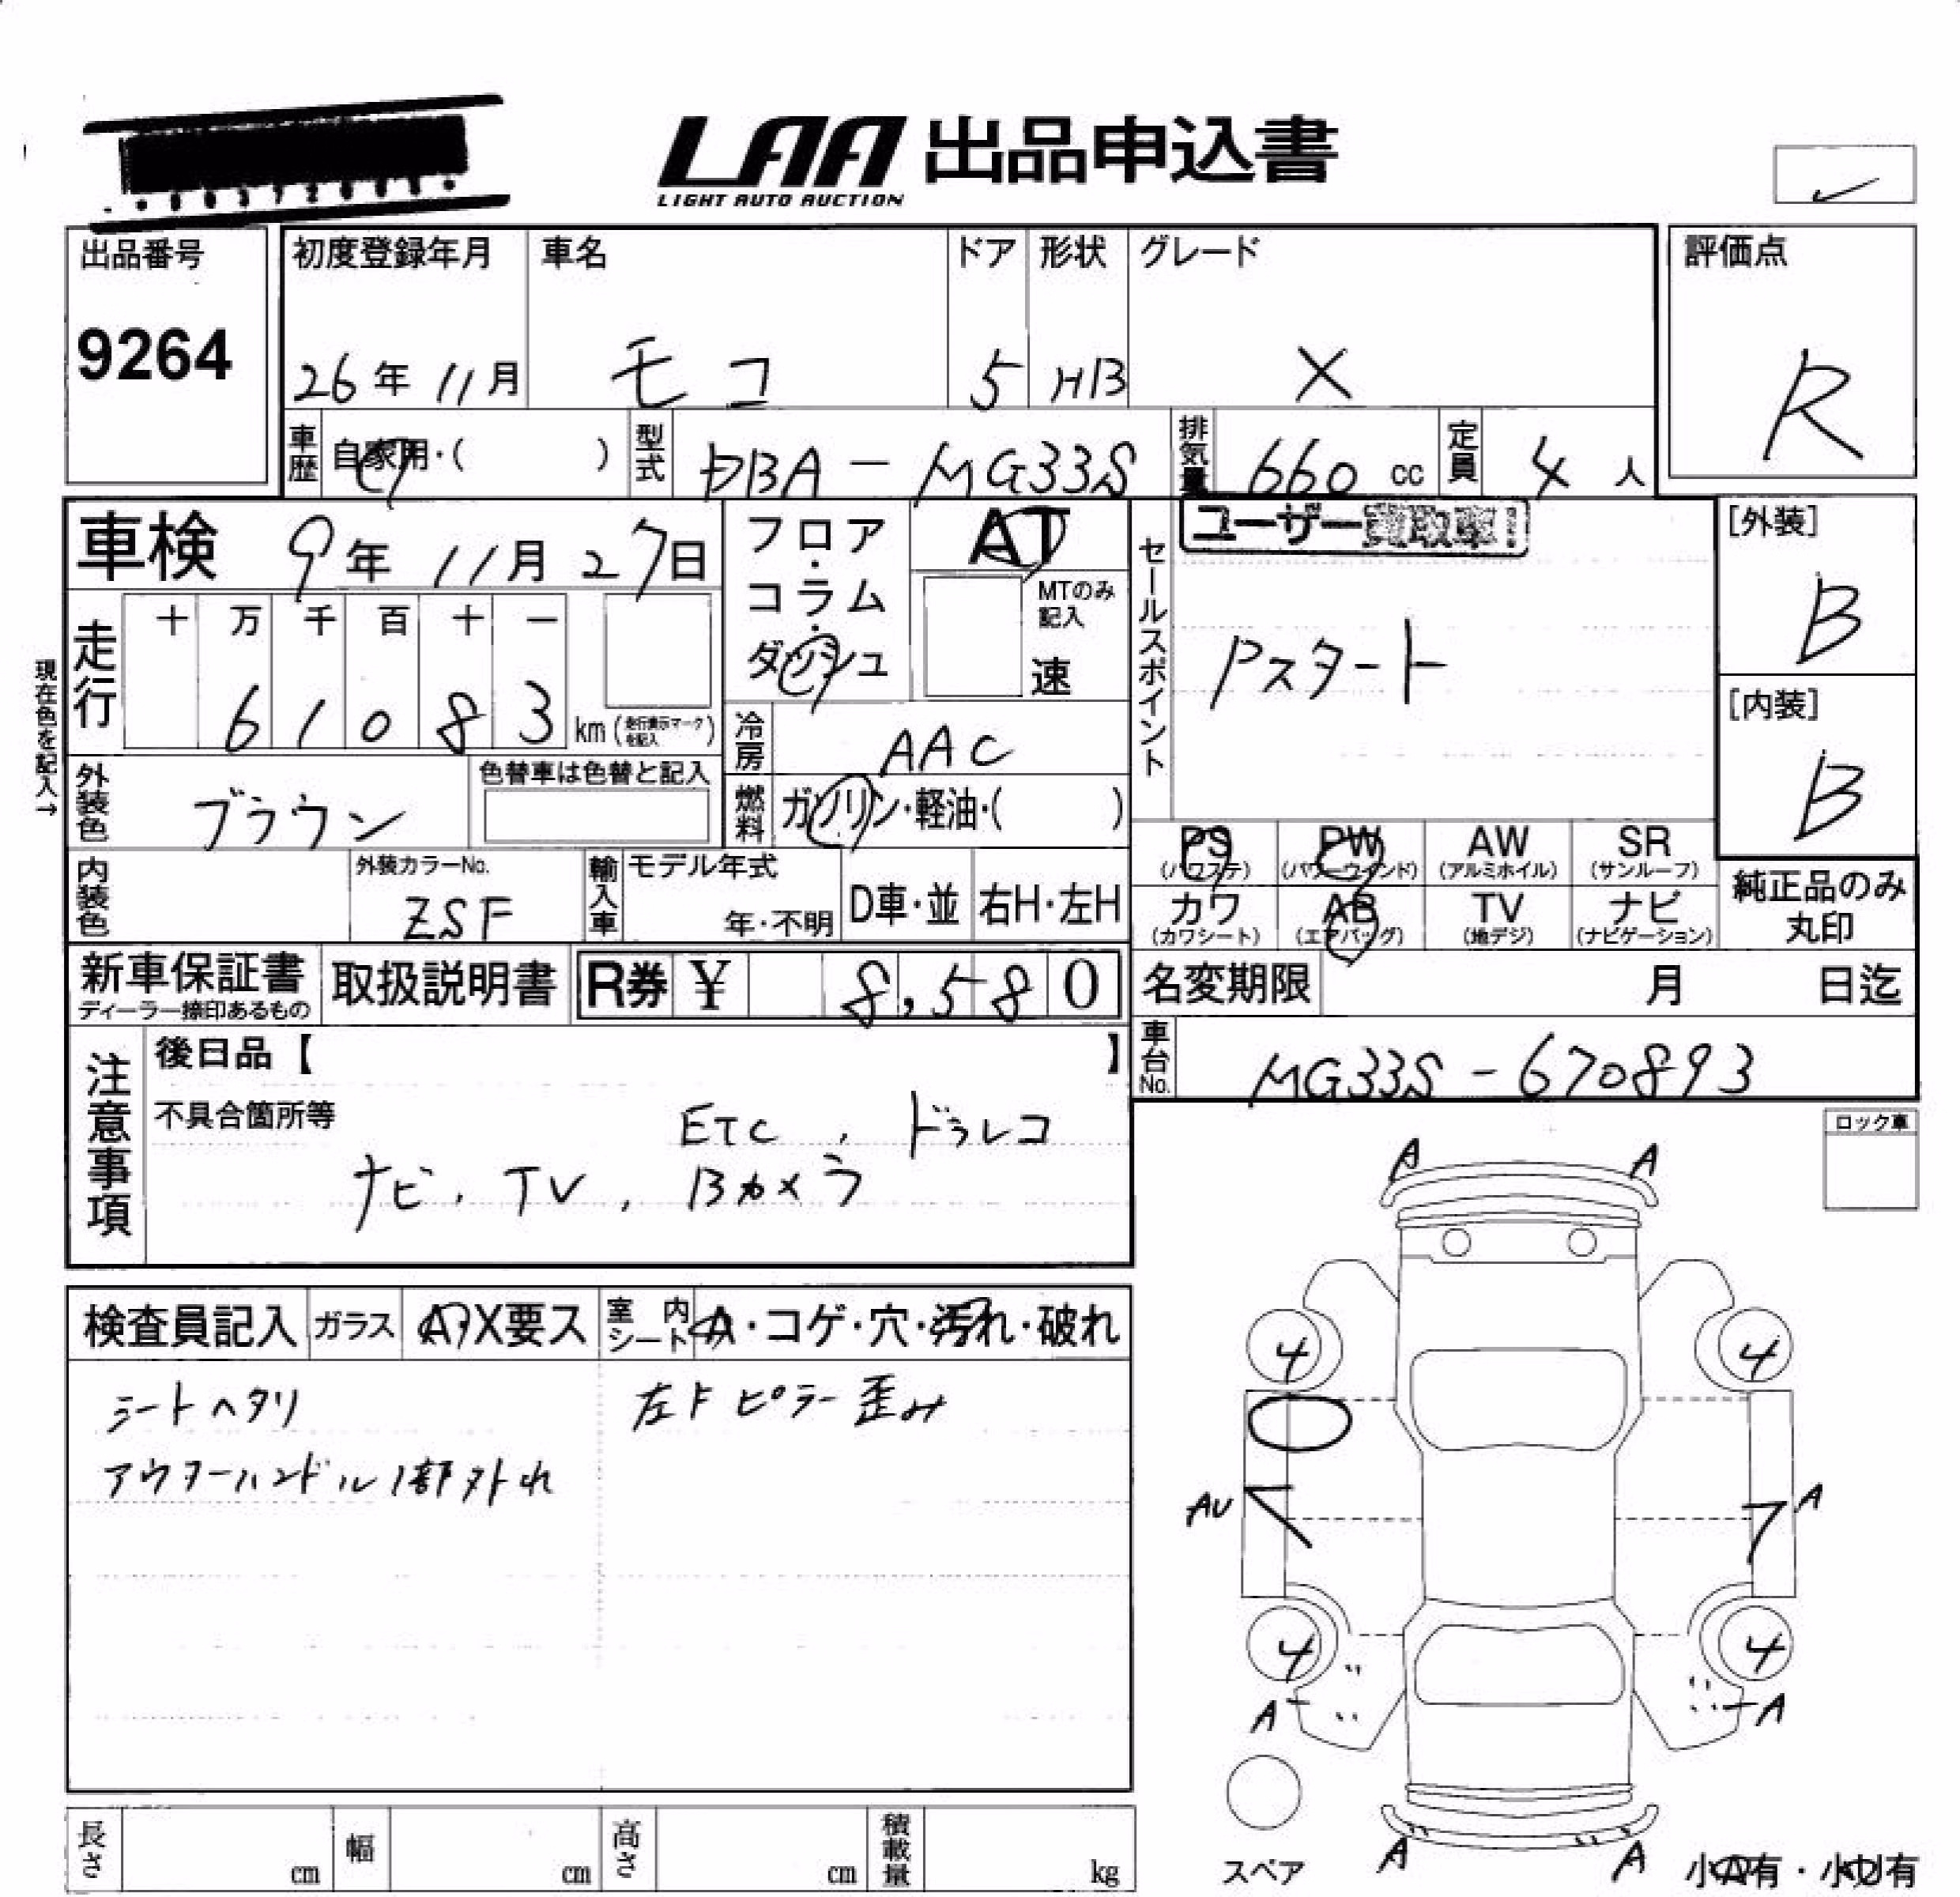 LAA 出品申込書
LIGHT AUTO AUCTION
出品番号
9264
初度登録年月 車名 ドア 形状 グレード
26年 11月 モコ 5 HB X
評価点
R
車歴 自家用・( ) 型式 DBA - MG33S 排気量 660 cc 定員 4 人
車検 9年 11月 27日
フロア・コラム・ダッシュ
AT
MTのみ記入
速
セールスポイント
ユーザー
Pスタート
[外装]
B
[内装]
B
現在色を記入→
走行 十 万 千 百 十 一
6 1 0 8 3 km (走行表示マークを記入)
冷房 AAC
外装色 ブラウン
色替車は色替と記入
燃料 ガソリン・軽油・( )
PS (パワステ) PW (パワーウインド) AW (アルミホイル) SR (サンルーフ)
カワ (カワシート) AB (エアバッグ) TV (地デジ) ナビ (ナビゲーション)
純正品のみ丸印
内装色 外装カラーNo. ZSF
輸入車 モデル年式 年・不明 D車・並 右H・左H
新車保証書 ディーラー捺印あるもの
取扱説明書
R券 ¥ 8,580
名変期限 月 日迄
車台No. MG33S - 670893
注意事項
後日品【 】
不具合箇所等
ETC , ドラレコ
ナビ, TV, Bカメラ
ロック車
検査員記入 ガラス A・X要ス 室内シート A・コゲ・穴・汚れ・破れ
シートヘタリ
アウターハンドル1部外れ
左Fピラー歪み
A A
4 4
AU A
4 4
A A
A A
スペア
小A有・小U有
長さ cm 幅 cm 高さ cm 積載量 kg